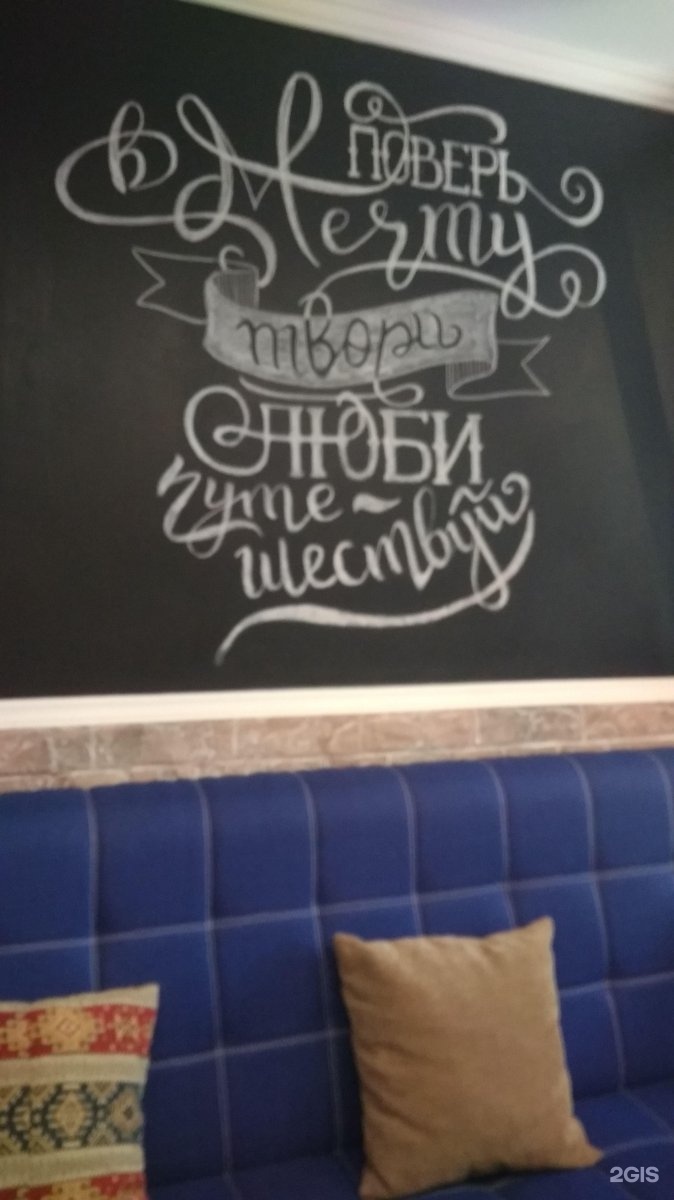 ПОВЕРЬ
в Мечту
твори
ЛЮБИ
путе-
шествуй
2GIS